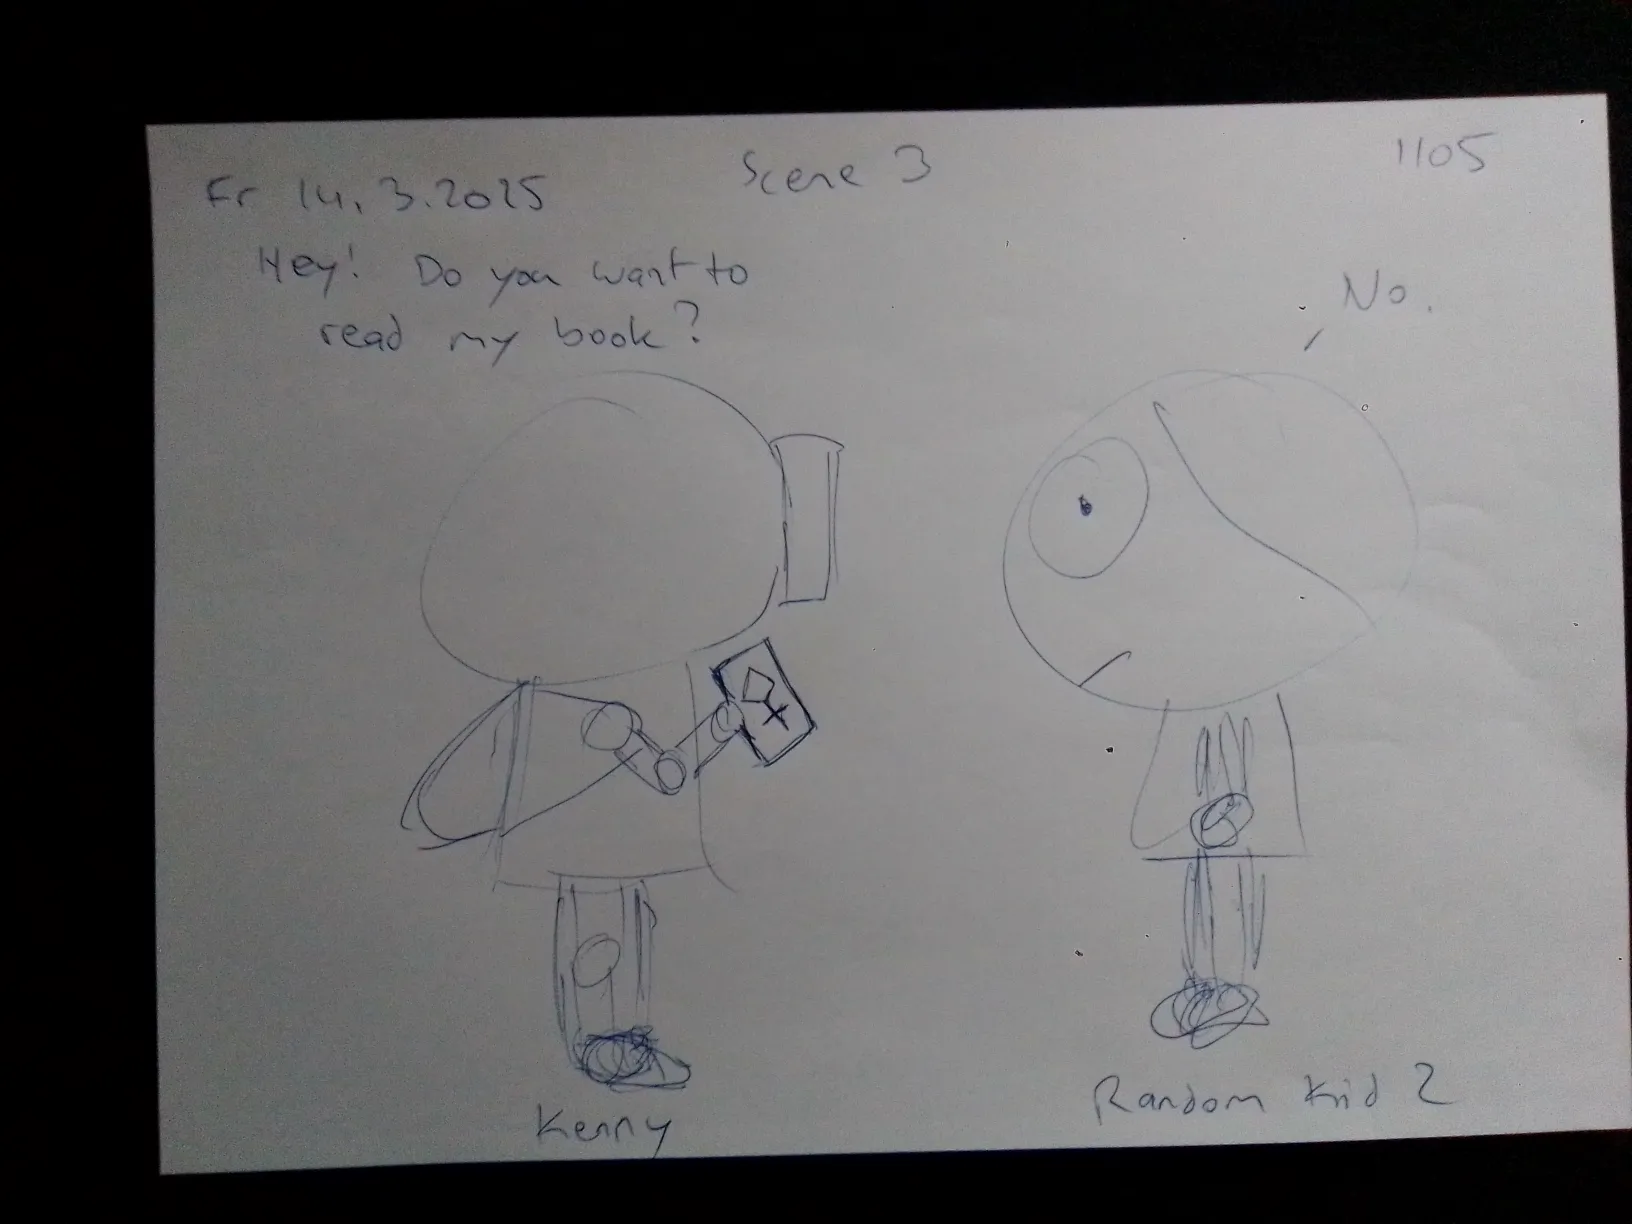 Fr 14.3.2025
Scene 3
1105
Hey! Do you want to
read my book?
No.
Kenny
Random Kid 2